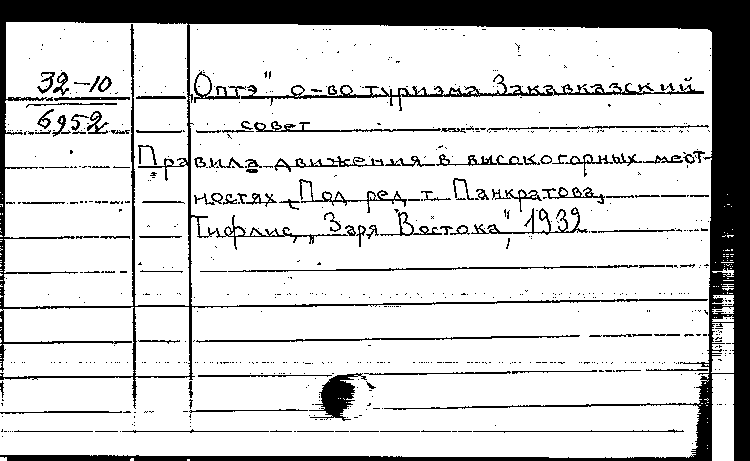 32-10
6952
„Оптэ", о-во туризма Закавказский
совет
Правила движения в высокогорных мест-
ностях. Под ред. т. Панкратова,
Тифлис, „Заря Востока", 1932